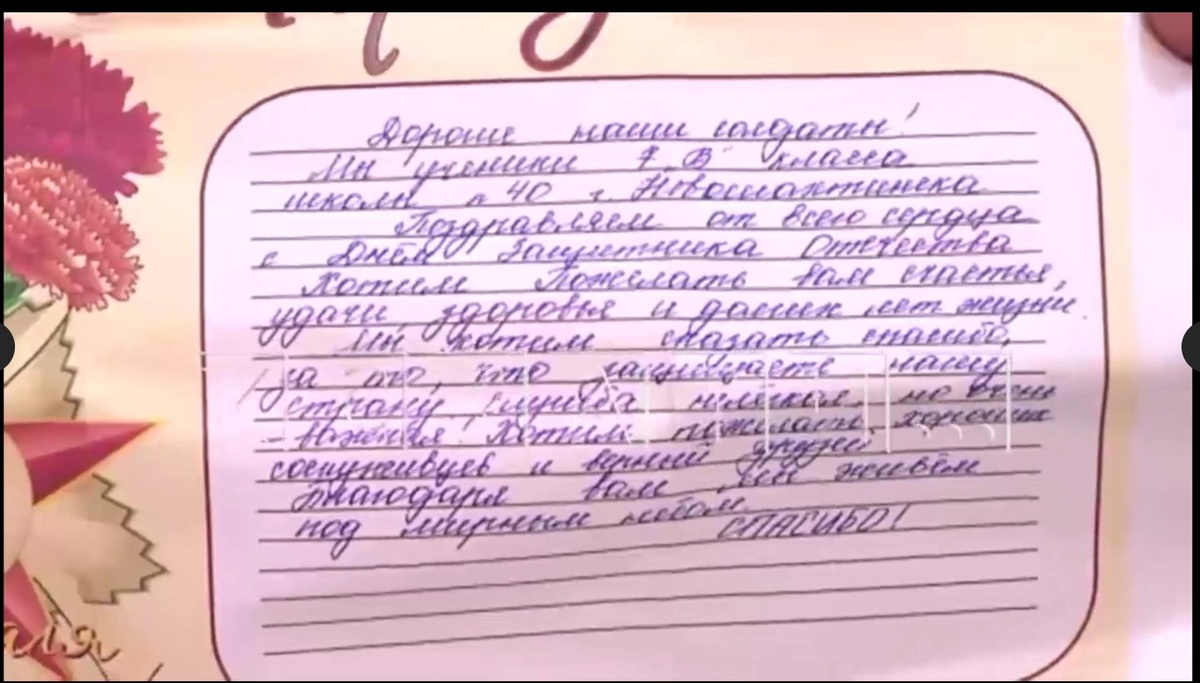 Дорогие наши солдаты!
Мы ученики 7 В класса
школы n 40 г. Новошахтинска
Поздравляем от всего сердца
с Днём Защитника Отечества
Хотим Пожелать вам счастья,
удачи здоровья и долгих лет жизни.
Мы хотим сказать спасибо,
за то, что защищаете нашу
страну. Служба нелёгкая, но очень
важная! Хотим пожелать хороших
сослуживцев и верных друзей
Благодаря вам мы живём
под мирным небом.
СПАСИБО!
аля